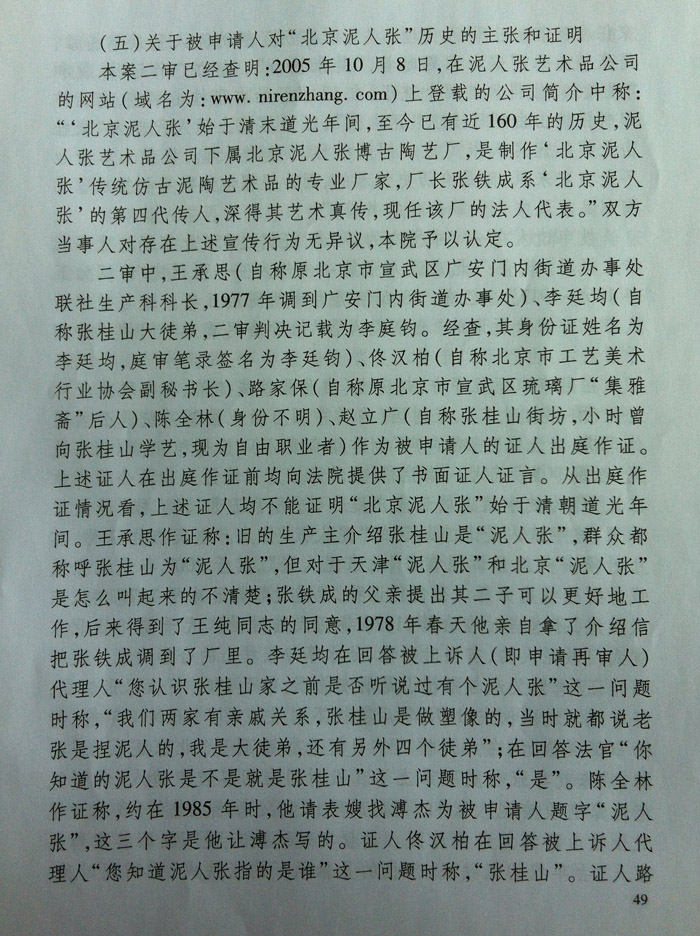 (五)关于被申请人对“北京泥人张”历史的主张和证明
本案二审已经查明:2005年10月8日,在泥人张艺术品公司
的网站(域名为:www. nirenzhang. com)上登载的公司简介中称:
“‘北京泥人张’始于清末道光年间,至今已有近160年的历史,泥
人张艺术品公司下属北京泥人张博古陶艺厂,是制作‘北京泥人
张’传统仿古泥陶艺术品的专业厂家,厂长张铁成系‘北京泥人
张’的第四代传人,深得其艺术真传,现任该厂的法人代表。”双方
当事人对存在上述宣传行为无异议,本院予以认定。
二审中,王承思(自称原北京市宣武区广安门内街道办事处
联社生产科科长,1977年调到广安门内街道办事处)、李廷均(自
称张桂山大徒弟,二审判决记载为李庭钧。经查,其身份证姓名为
李廷均,庭审笔录签名为李廷钧)、佟汉柏(自称北京市工艺美术
行业协会副秘书长)、路家保(自称原北京市宣武区琉璃厂“集雅
斋”后人)、陈全林(身份不明)、赵立广(自称张桂山街坊,小时曾
向张桂山学艺,现为自由职业者)作为被申请人的证人出庭作证。
上述证人在出庭作证前均向法院提供了书面证人证言。从出庭作
证情况看,上述证人均不能证明“北京泥人张”始于清朝道光年
间。王承思作证称:旧的生产主介绍张桂山是“泥人张”,群众都
称呼张桂山为“泥人张”,但对于天津“泥人张”和北京“泥人张”
是怎么叫起来的不清楚;张铁成的父亲提出其二子可以更好地工
作,后来得到了王纯同志的同意,1978年春天他亲自拿了介绍信
把张铁成调到了厂里。李廷均在回答被上诉人(即申请再审人)
代理人“您认识张桂山家之前是否听说过有个泥人张”这一问题
时称,“我们两家有亲戚关系,张桂山是做塑像的,当时就都说老
张是捏泥人的,我是大徒弟,还有另外四个徒弟”;在回答法官“你
知道的泥人张是不是就是张桂山”这一问题时称,“是”。陈全林
作证称,约在1985年时,他请表嫂找溥杰为被申请人题字“泥人
张”,这三个字是他让溥杰写的。证人佟汉柏在回答被上诉人代
理人“您知道泥人张指的是谁”这一问题时称,“张桂山”。证人路
49